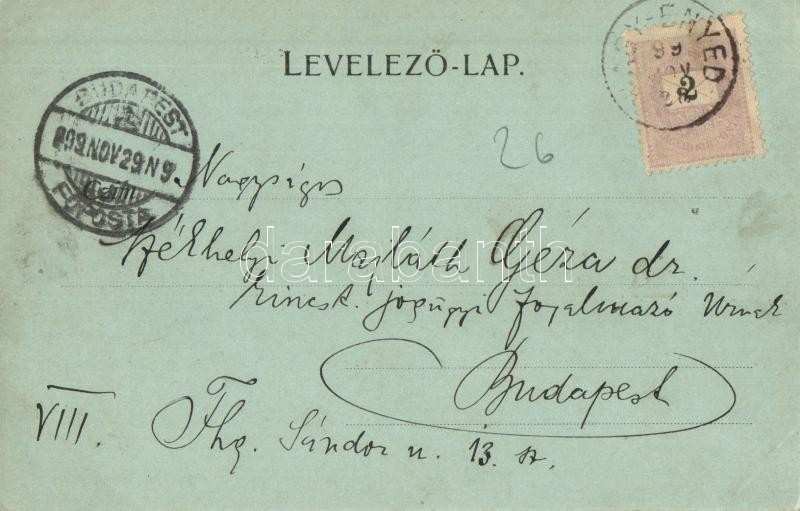 LEVELEZŐ-LAP.
NAGY-ENYED
99
NOV
28
2
BUDAPEST
899 NOV 29 N 9
FŐPOSTA
26
Nagyságos
Székhelyi Majláth Géza dr.
kincst. jogügyi fogalmazó Urnak
Budapest
VIII. Fhg. Sándor u. 13. sz.
darabanth